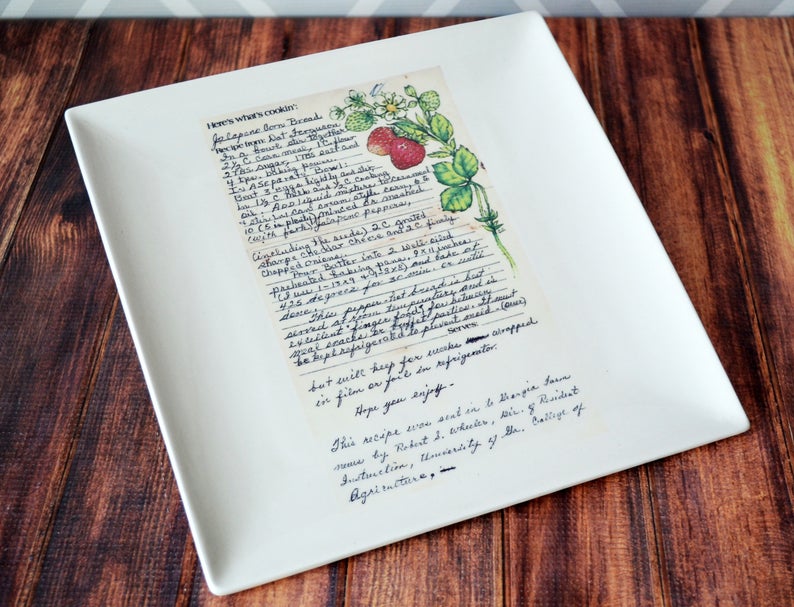 Here's what's cookin':
Jalapeno Corn Bread
Recipe from: Dot Ferguson
In a bowl, stir together
2½ C. corn meal, 1 C. flour
2 TBS sugar, 1 TBS salt and
4 tps. baking power.
In A Separate Bowl:
Beat 3 eggs lightly and stir
in 1½ C milk and ½ C cooking
oil. Add liquid mixture to cornmeal
& stir in 1 can cream style corn, 6 to
10 (5 is plenty) minced or mashed
(with fork) jalapeno peppers,
(including the seeds) 2 C grated
sharpe cheddar cheese and 2 C finely
chopped onions.
Pour batter into 2 well oiled
preheated baking pans, 9 x 11 inches,
(I use 1-13x9 & 1-8x8) and bake at
425 degrees for 30 min. or until
done.
This pepper-hot bread is best
served at room temperature and is
excellent "finger food" for between
meal snacks or buffet parties. It must
be kept refrigerated to prevent mold. (Over)
Serves:
but will keep for weeks wrapped
in film or foil in refrigerator.
Hope you enjoy-
This recipe was sent in to Georgia Farm
news by Robert S. Wheeler, Dir. of Resident
Instruction, University of Ga. College of
Agriculture.